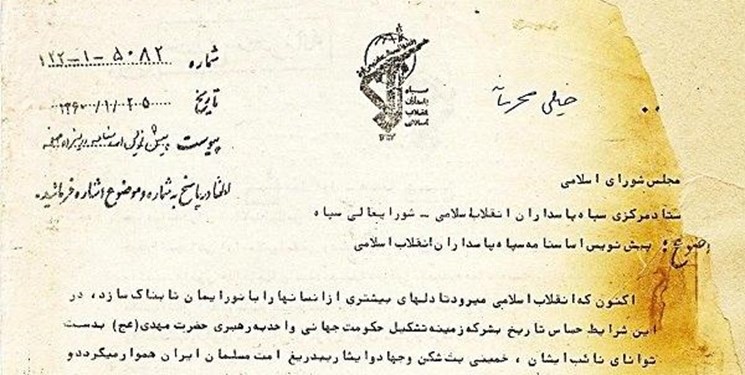 شماره ۱۲۲-۱-۵۰۸۲
خیلی محرمانه
تاریخ ۱۳۶۰/۱/۲۰۵
پیوست پیش نویس اساسنامه در پانزده صفحه
لطفا در پاسخ به شماره و موضوع اشاره فرمائید.
سپاه
پاسداران
انقلاب
اسلامی
مجلس شورای اسلامی
ستاد مرکزی سپاه پاسداران انقلاب اسلامی - شورایعالی سپاه
موضوع: پیش نویس اساسنامه سپاه پاسداران انقلاب اسلامی
اکنون که انقلاب اسلامی میرود تا دلهای بیشتری از انسانها را با نور ایمان تابناک سازد، در
این شرایط حساس تاریخ بشر که زمینه تشکیل حکومت جهانی واحد به رهبری حضرت مهدی(عج) بدست
توانای نائب ایشان، خمینی بت شکن وجهاد وایثار بیدریغ امت مسلمان ایران هموار میگردد و